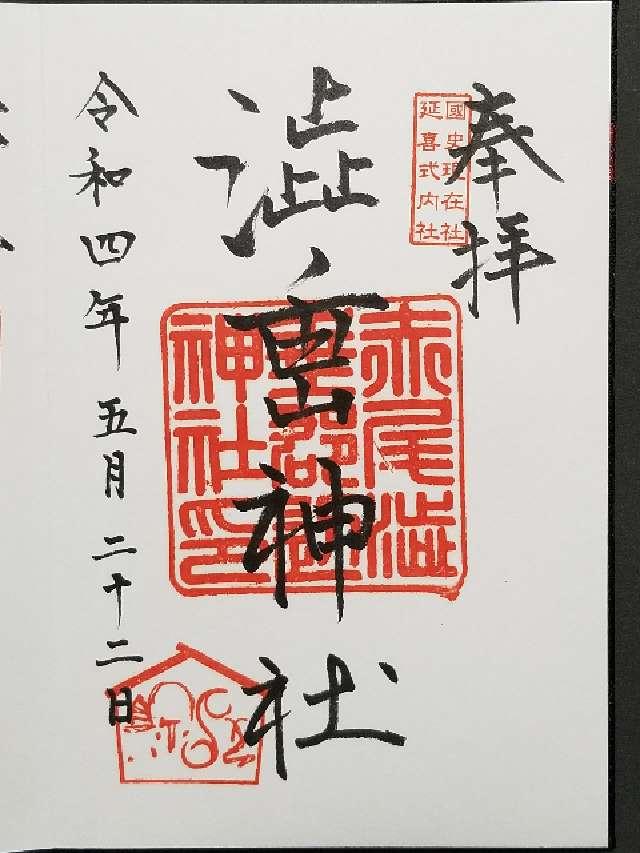 奉拝
國史現在社
延喜式内社
澁ノ宮神社
赤尾澁
垂郡邊
神社印
令和四年五月二十二日